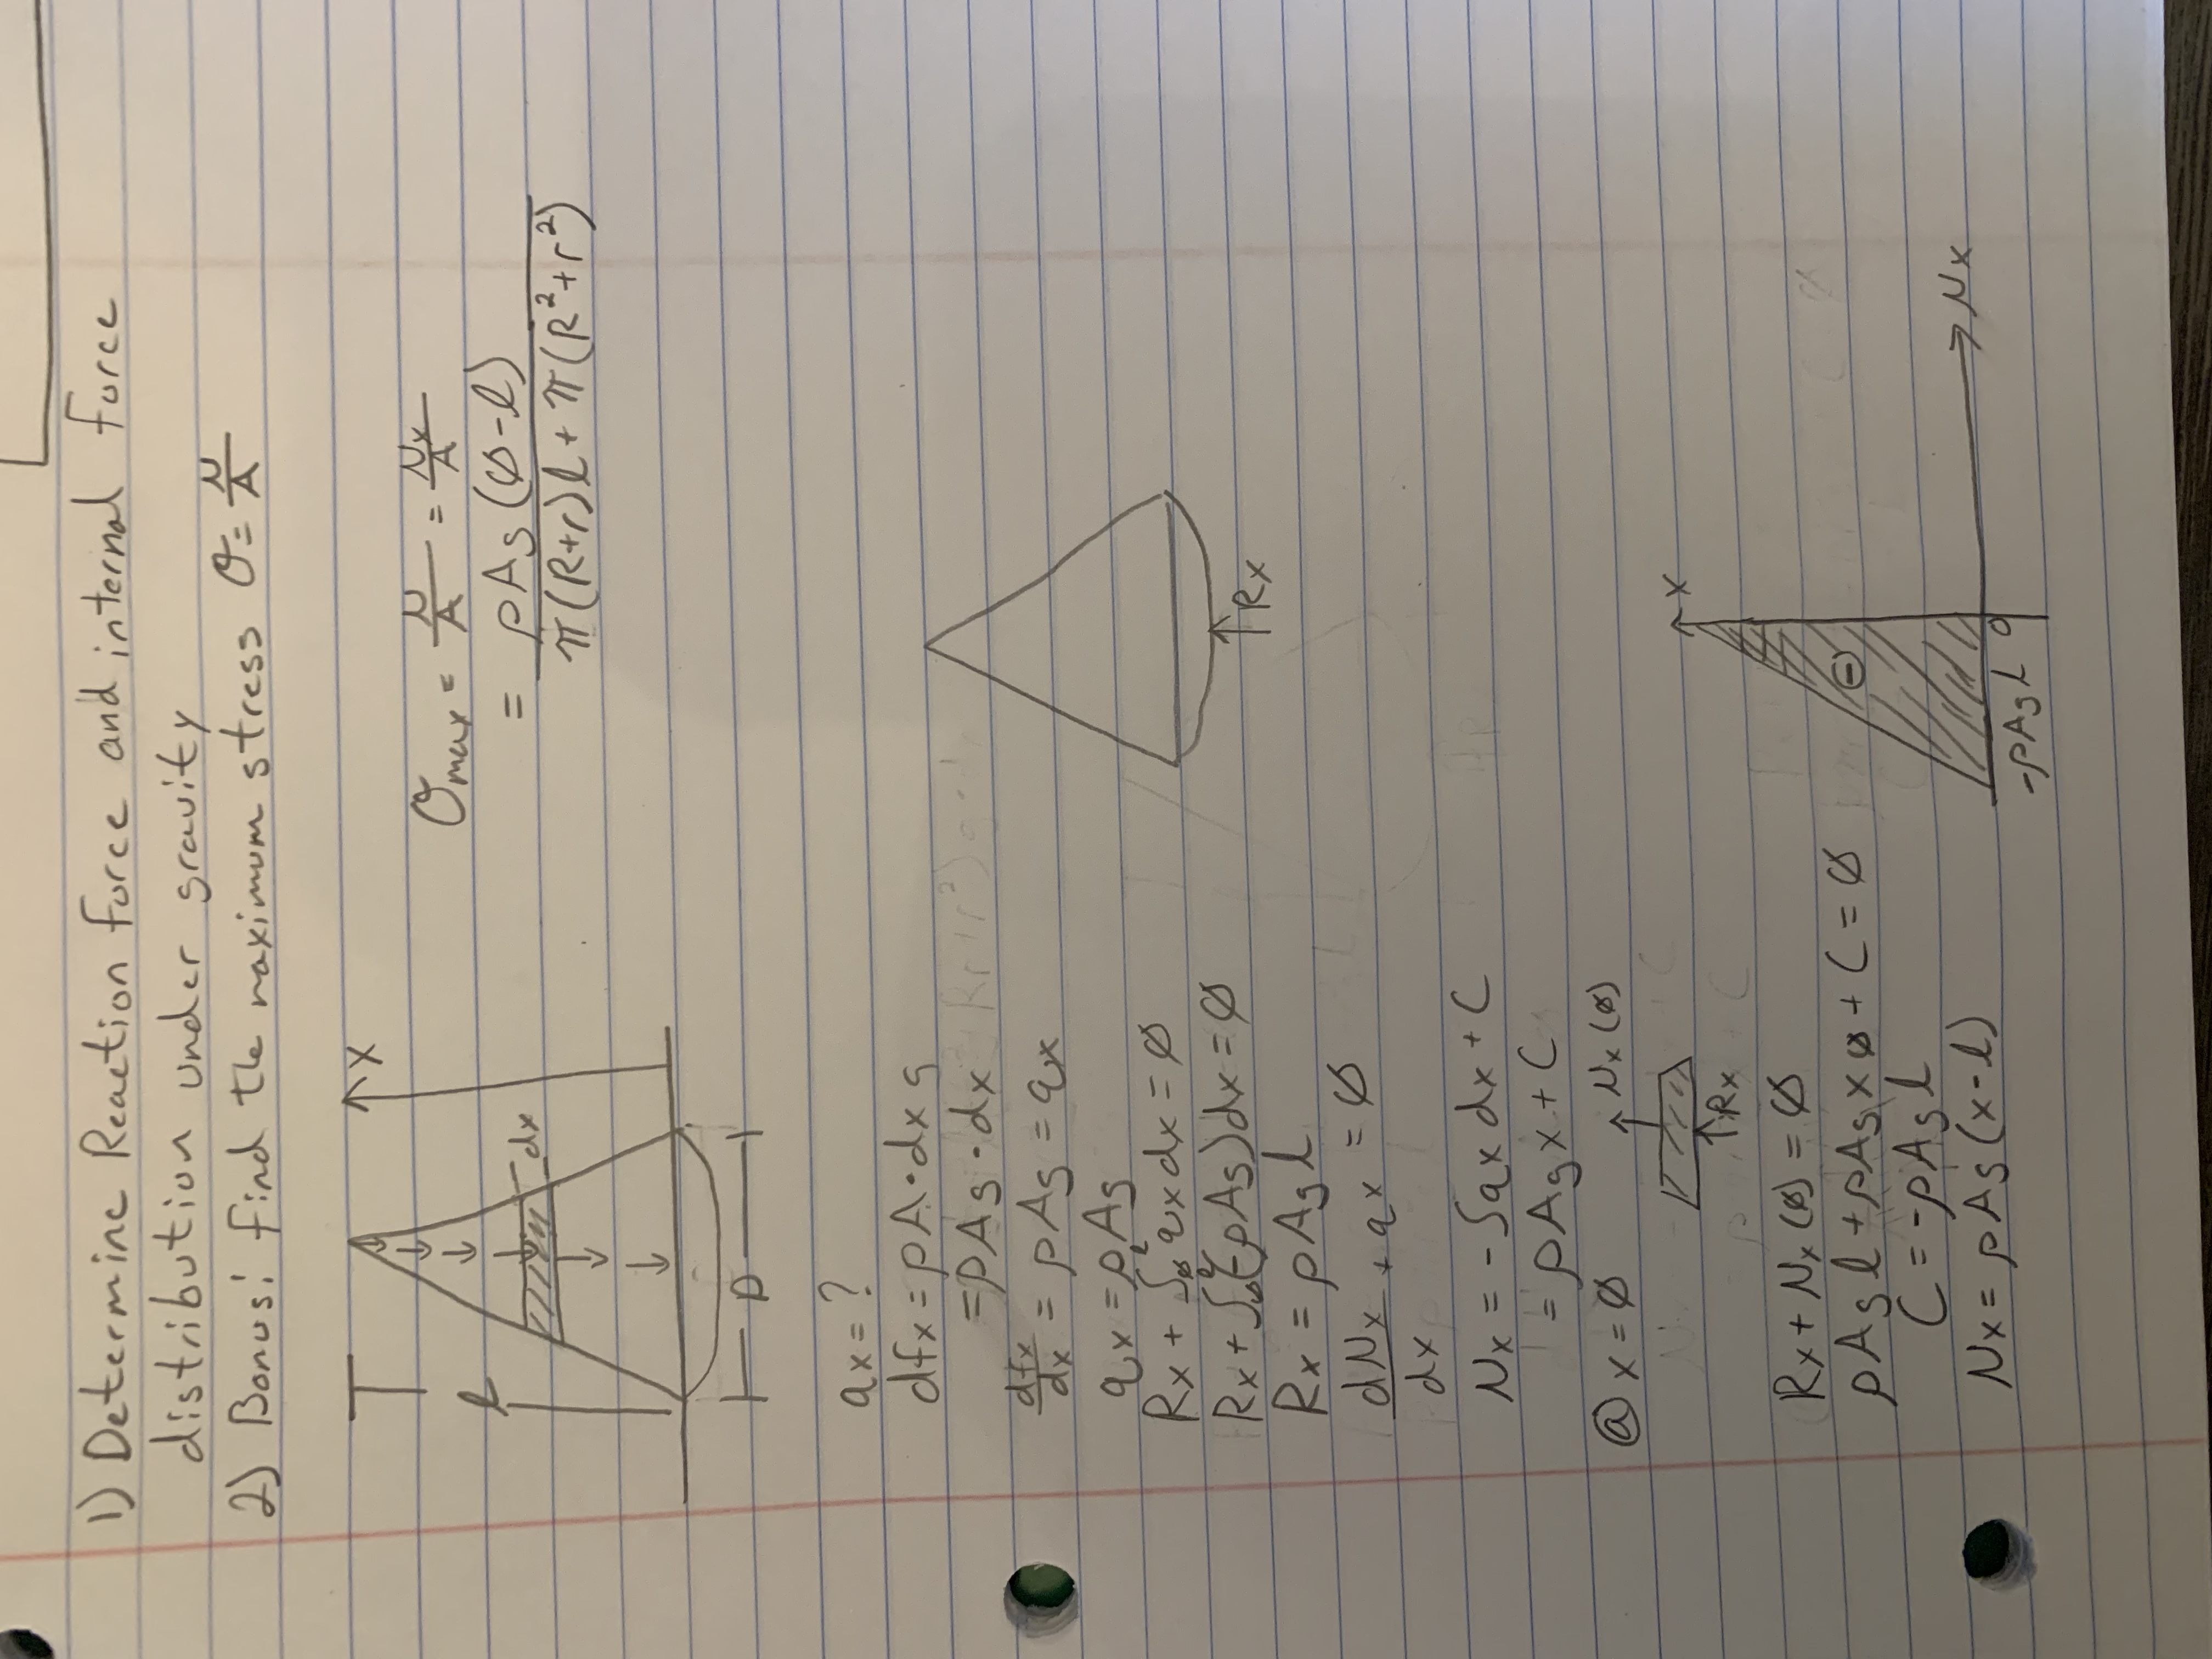 1) Determine Reaction force and internal force
distribution under gravity
2) Bonus: find the maximum stress σ = N/A
x
l
dx
D
σmax = N/A = Nx/A
= ρAg(∅-l) / π(R+r)l + π(R²+r²)
qx = ?
dfx = ρA·dxg
= ρAg·dx
dfx/dx = ρAg = qx
qx = ρAg
Rx + ∫₀ˡ qxdx = ∅
Rx + ∫₀ˡ(-ρAg)dx = ∅
Rx = ρAgl
Rx
dNx/dx + qx = ∅
Nx = -∫qxdx + C
= ρAgx + C
@ x = ∅
Nx(∅)
Rx
Rx + Nx(∅) = ∅
ρAgl + ρAgx∅ + C = ∅
C = -ρAgl
Nx = ρAg(x-l)
x
⊖
Nx
-ρAgl 0